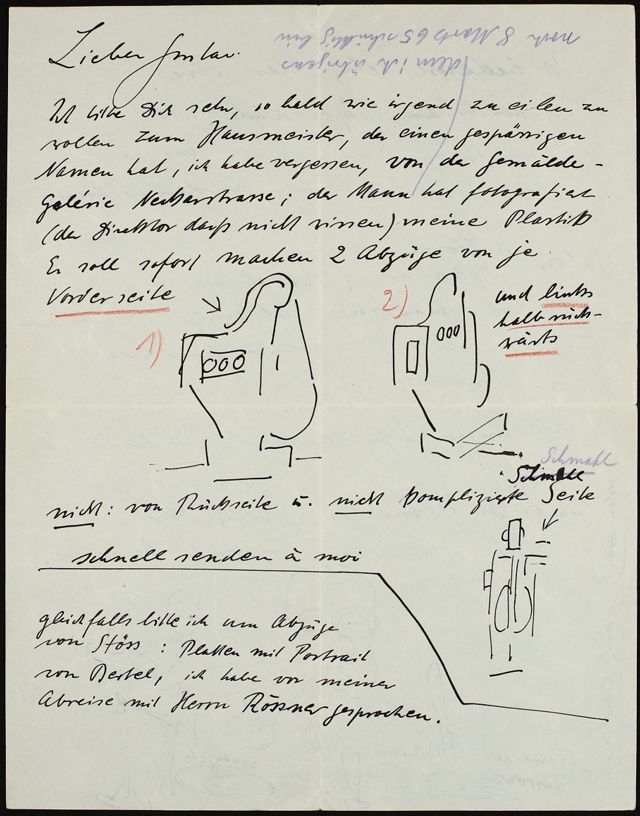 noch 8 Mark 65 schuldig bin
dem ich übrigens
Lieber Gustav.
Ich bitte Dich sehr, so bald wie irgend zu eilen zu
wollen zum Hausmeister, der einen gespässigen
Namen hat, ich habe vergessen, von der Gemälde-
Galerie Neckarstrasse; der Mann hat fotografiert
(der Direktor darfs nicht wissen) meine Plastik
Er soll sofort machen 2 Abzüge von je
Vorderseite
1)
2)
und links
halb rück-
wärts
Schmahl
nicht: von Rückseite u. nicht komplizierte Seite
schnell senden à moi
gleichfalls bitte ich um Abzüge
von Störs: Platten mit Portrait
von Berbel, ich habe vor meiner
Abreise mit Herrn Rössner gesprochen.